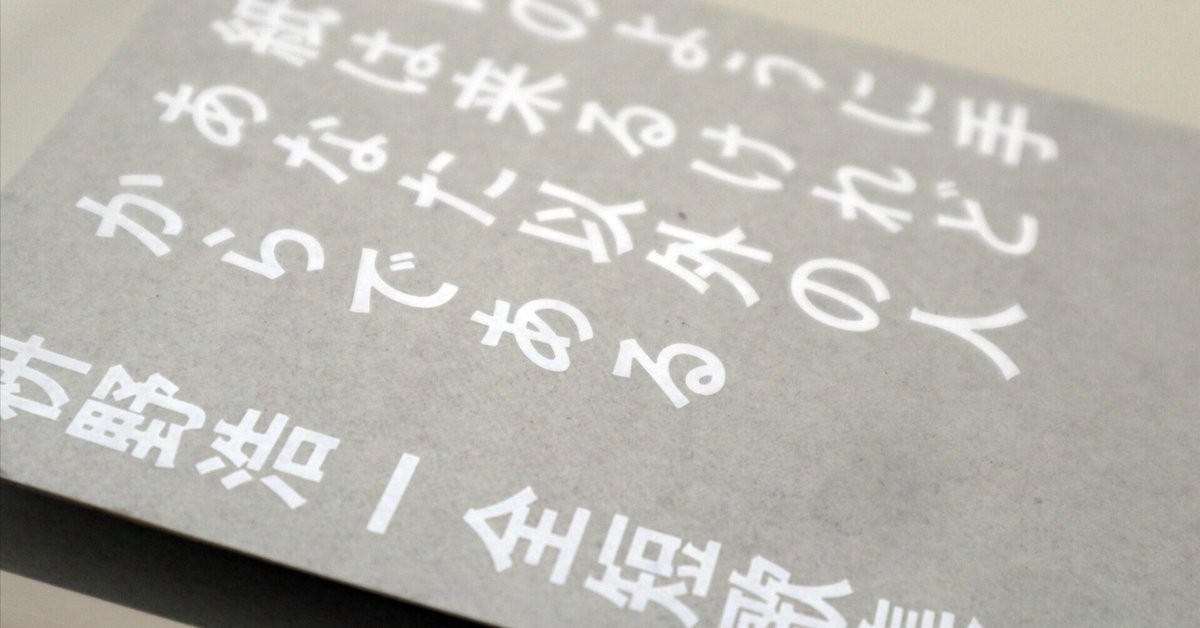 のように手
紙は来るけれど
あなた以外の人
からである
野浩一全短歌